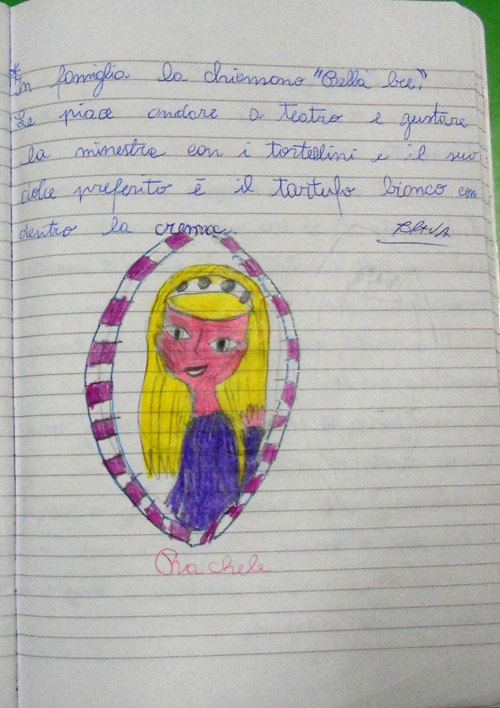 In famiglia la chiamano "Bella bee".
Le piace andare a teatro e gustare
la minestra con i tortellini e il suo
dolce preferito è il tartufo bianco con
dentro la crema.
BRAVA
Rachele